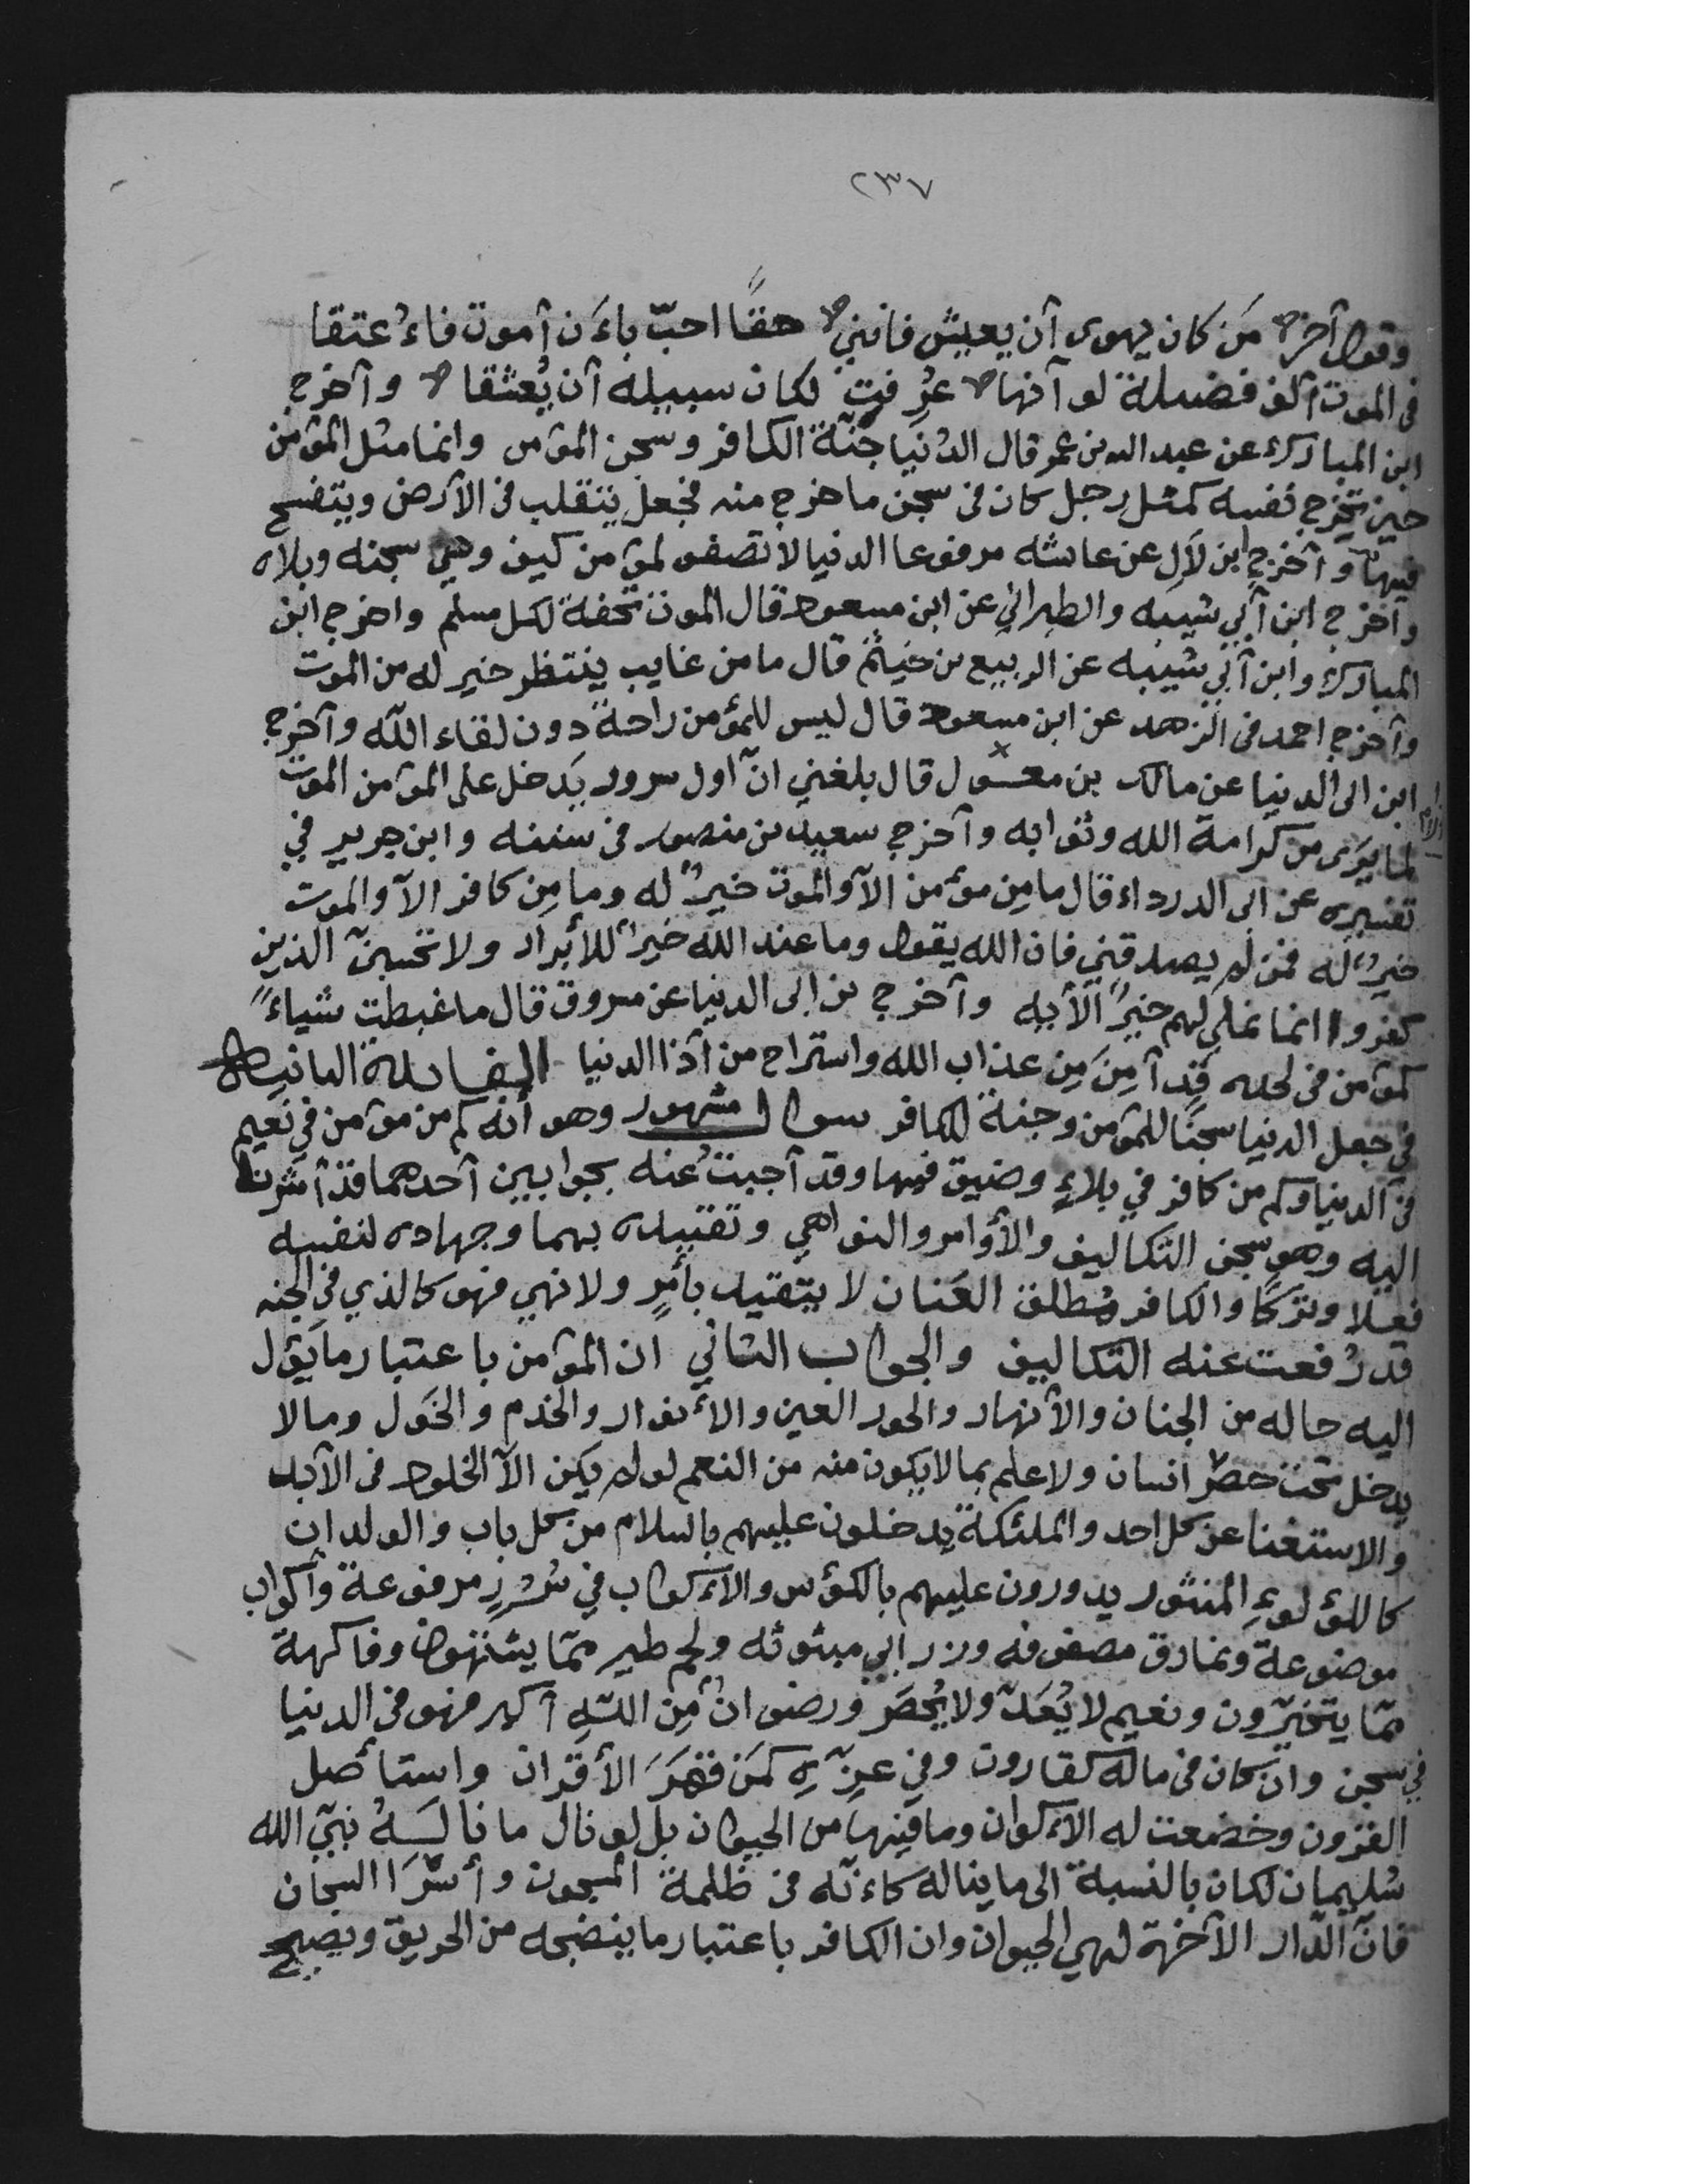 ٢٣٧
وقول آخر من كان يهوى أن يعيش فانني حقًا احبّ باءَن أموت فاءُعتقا
فى الموت ألف فضيلة لو أنها عُرِفت لكان سبيله أن يُعشقا وأخرج
ابن المبارك عن عبد الله بن عمر قال الدُنيا جنّة الكافر وسجن المؤمن وانما مثل المؤمن
حين تخرج نفسه كمثل رجل كان فى سجن ما خرج منه فجعل يتقلب فى الأرض ويتفسح
فيها وأخرج ابن لآل عن عائشه مرفوعا الدنيا لا تصفو لمؤمن كيف وهي سجنه وبلاه
وأخرج ابن أبي شيبه والطبراني عن ابن مسعود قال الموت تحفة لكل مسلم واخرج ابن
المبارك وابن أبي شيبه عن الربيع بن خيثم قال ما من غايب ينتظر خير له من الموت
وأخرج احمد فى الزهد عن ابن مسعود قال ليس للمؤمن راحة دون لقاء الله وأخرج
ابن ابى الدنيا عن مالك بن معسول قال بلغني انّ اول سرور يَدخل على المؤمن الموت
لما يَرَى من كرامة الله وثوابه وأخرج سعيد بن منصور فى سننه وابن جرير في
تفسيره عن ابى الدرداء قال ما مِن مؤمن الآ والموت خيرٌ له وما مِن كافر الآ والموت
خيرٌ له فمن لم يصدقني فان الله يقول وما عند الله خيرٌ للأبرار ولا تحسبنّ الذين
كفروا انما نملي لهم خيرٌ الأيه وأخرج بن ابى الدنيا عن مسروق قال ما غبطت شياءً
كمؤمن فى لحده قد أمِنَ مِن عذاب الله واستراح من آذا الدنيا الفايدة الثانية
في جعل الدنيا سجنًا للمؤمن وجنة للكافر سوال مشهور وهو أنه كم من مؤمن في نعيم
فى الدنيا وكم من كافر في بلاءٍ وضيق فيها وقد آجبتُ عنه بجوابين آحدهما قد أشرنا
اليه وهو سجن التكاليف والأوامر والنواهي وتقييده بهما وجهاده لنفسه
فعلا وتركًا والكافر مُطلق العَنان لا يتقيد بأمرٍ ولا نهي فهو كالذي في الجنه
قد رُفعت عنه التكاليف والجواب الثاني ان المؤمن باعتبار ما يَؤل
اليه حاله من الجنان والأنهار والحور العين والأنوار والخدم والخَول ومالا
يدخل تحت حصر انسان ولا علم بما لا يكون منه من النعم لو لم يكن الآ الخلود فى الأبد
والاستغنا عن كل احد والملئكة يدخلون عليهم بالسلام من كل باب والولدان
كاللؤلوءِ المنثور يدورون عليهم بالكؤس والأكواب في سُرُرٍ مرفوعة وأكواب
موضوعة ونمارق مصفوفه وزرابي مبثوثه ولحم طير ممّا يشتهون وفاكهة
ممّا يتخيّرون ونعيم لا يُعَدّ ولا يُحصَر ورضوانٌ مِن اللهِ أكبر فهو فى الدنيا
في سجن وان كان فى ماله كقارون وفي عزّه كمَن قهَرَ الأقران واستأصل
القرون وخضعت له الأكوان وما فيها من الحيوان بل لو نال ما نالَهُ نبيّ الله
سُليمان لكان بالنسبة الى ما يناله كاءنّه فى ظلمة السجون وأسْرَا السجان
فانّ الدّار الآخرة لهي الحيوان وان الكافر باعتبار ما ينضجه من الحريق ويصيح